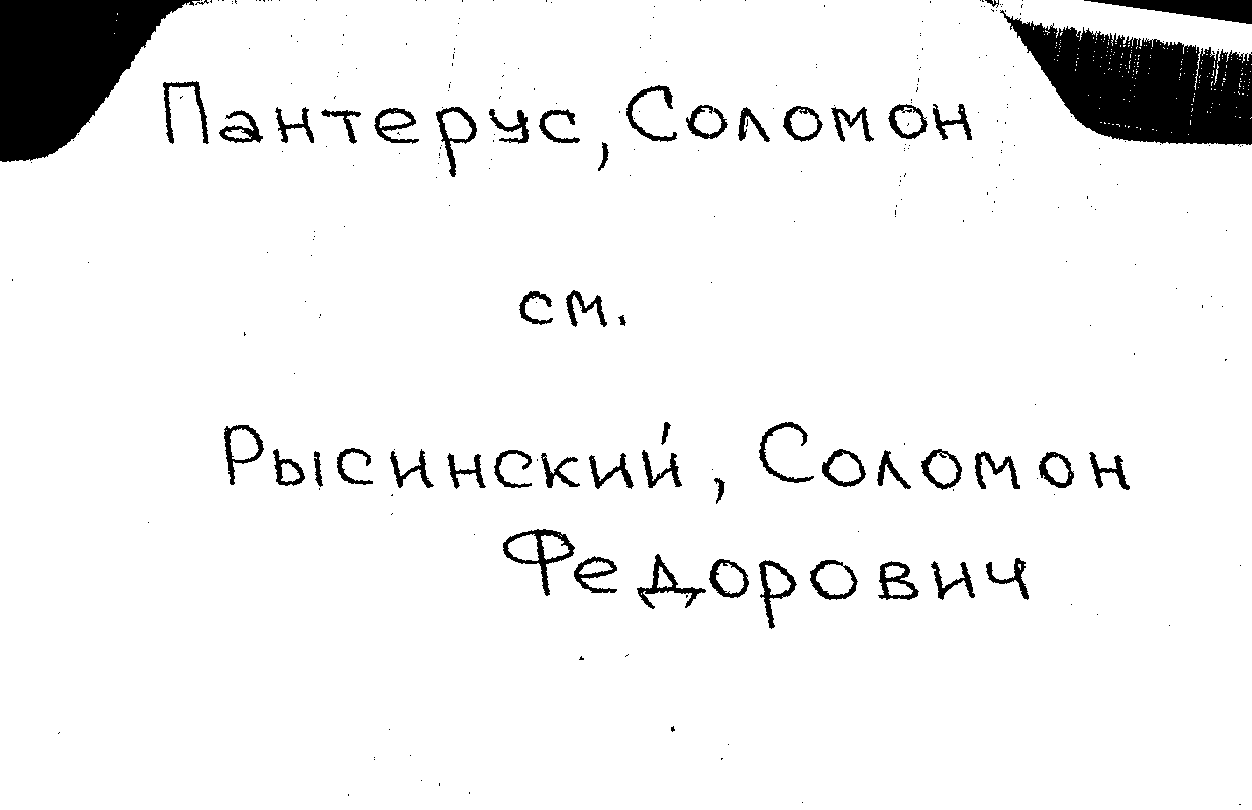 Пантерус, Соломон
см.
Рысинский, Соломон
Федорович